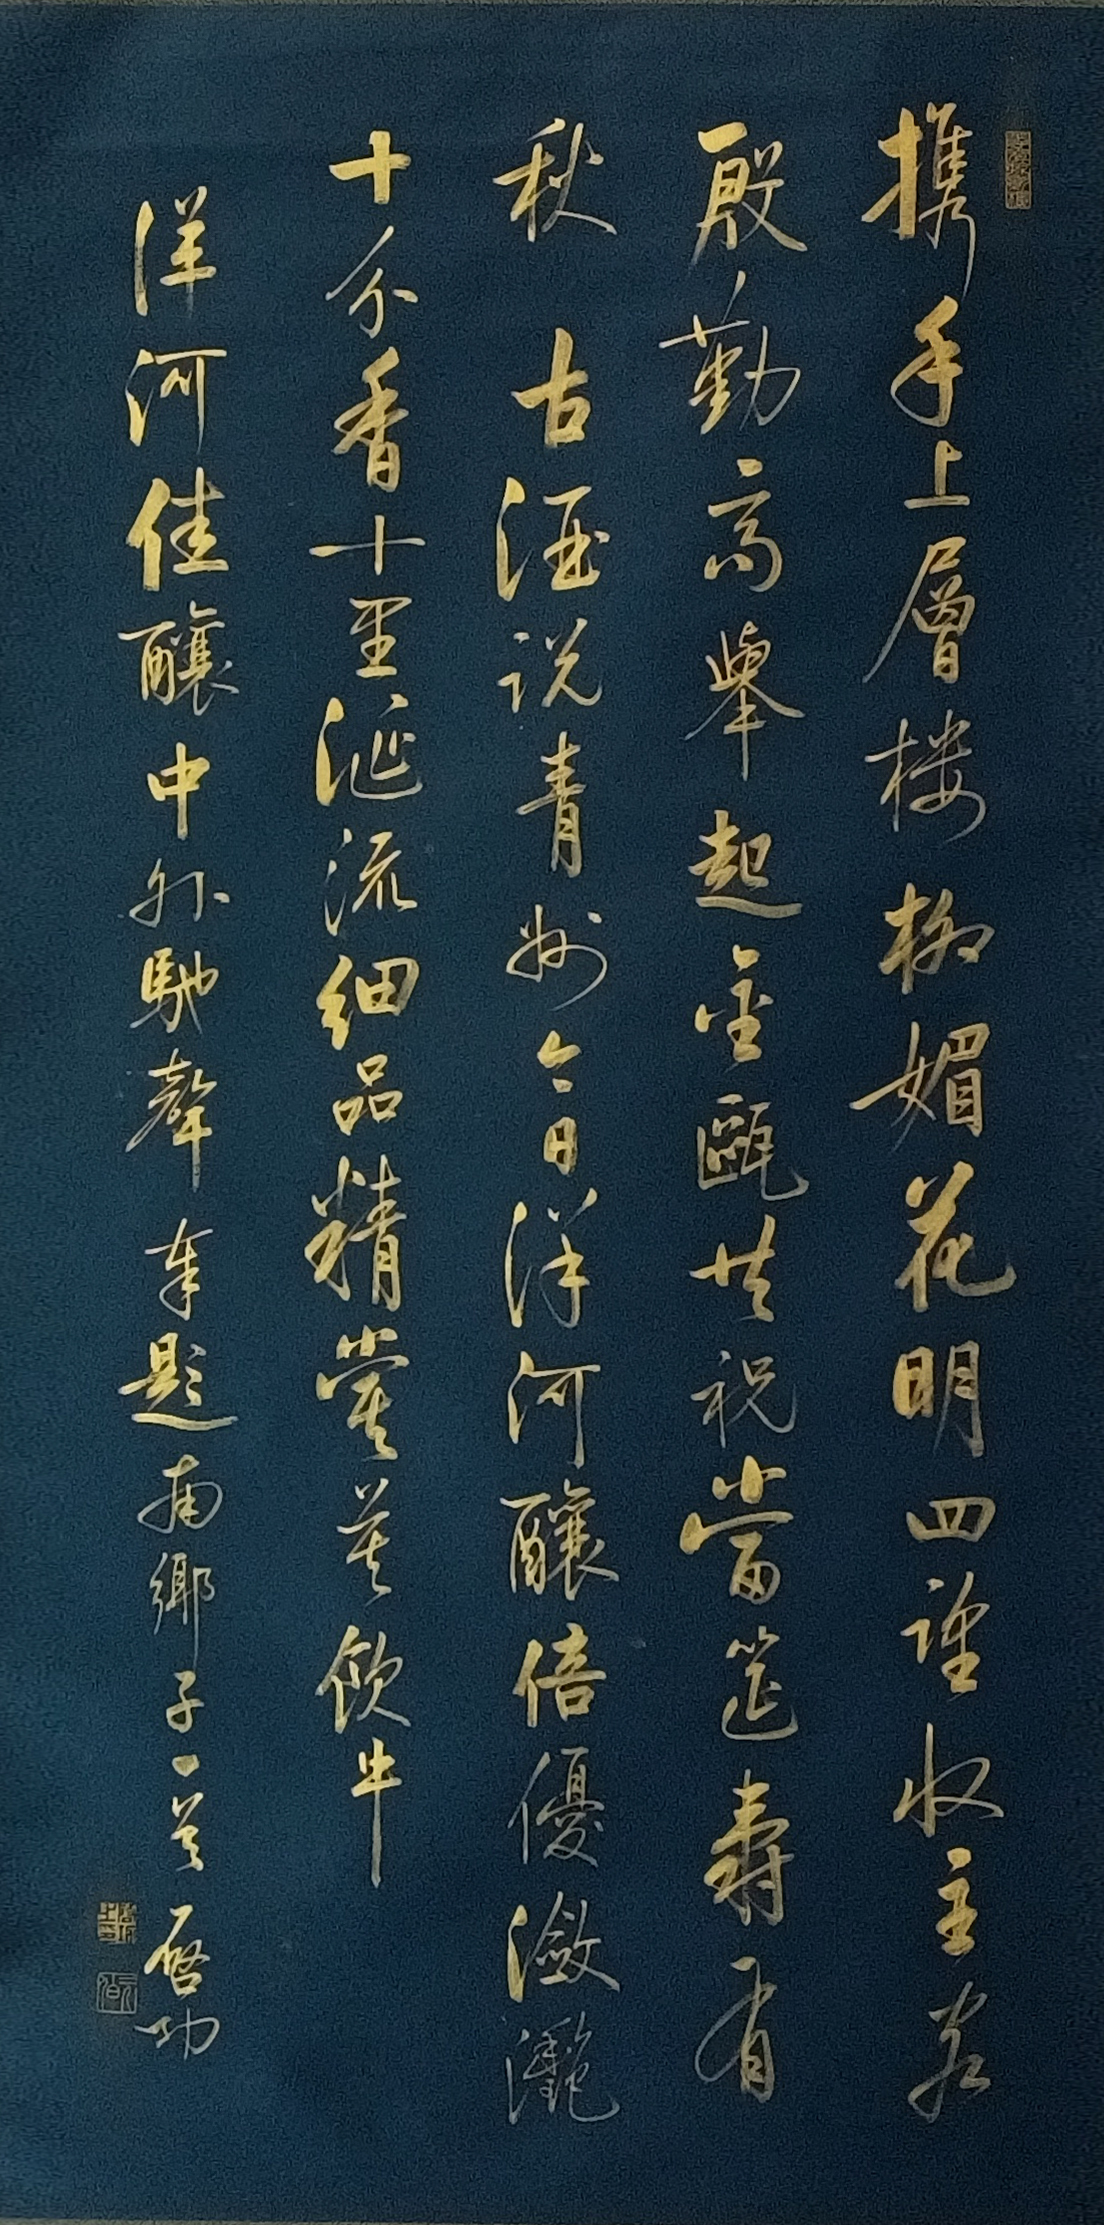 携手上層楼柳媚花明四望收主客
殷勤高舉起金甌共祝當筵壽有
秋 古酒说青州今日洋河釀倍優瀲灧
十分香十里涎流细品精嘗莫飲牛
洋河佳釀中外馳聲 率題南鄉子一首 启功